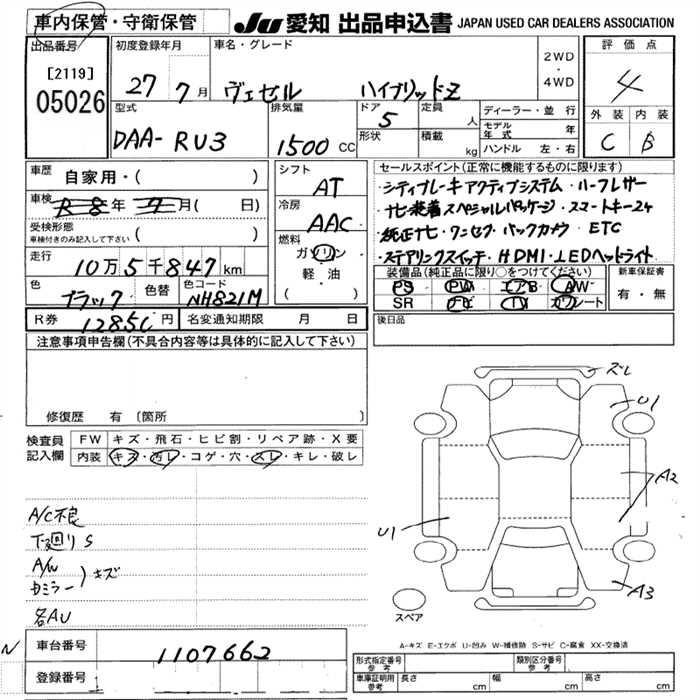 車内保管・守衛保管
JU 愛知 出品申込書 JAPAN USED CAR DEALERS ASSOCIATION
出品番号
[2119]
05026
初度登録年月
27 7月
車名・グレード
ヴェゼル ハイブリッドZ
2WD
・
4WD
評価点
4
外装 内装
C B
型式
DAA-RU3
排気量
1500 CC
ドア
5
形状
定員
人
積載
kg
ディーラー・並行
モデル年式 年
ハンドル 左・右
車歴
自家用・( )
車検
R8年 7月( 日)
受検形態
車検付きのみ記入して下さい ( )
走行
10万5千847km
色
ブラック
色替
色コード
NH821M
シフト
AT
冷房
AAC
燃料
ガソリン
軽・油
( )
R券
12850円
名変通知期限 月 日
セールスポイント(正常に機能するものに限ります)
・シティブレーキアクティブシステム ・ハーフレザー
・ナビ装着スペシャルパッケージ ・スマートキー2ケ
・純正ナビ ・ワンセグ ・バックカメラ ETC
・ステアリングスイッチ ・HDMI ・LEDヘッドライト
装備品(純正品に限り○をつけてください)
PS PW エアB AW
SR ナビ TV カワシート
新車保証書
有・無
後日品
注意事項申告欄(不具合内容等は具体的に記入して下さい)
修復歴 有 〔箇所
検査員
記入欄
FW キズ・飛石・ヒビ割・リペア跡・X要
内装 キズ・汚レ・コゲ・穴・スレ・キレ・破レ
A/C不良
下廻りS
A/W
ドミラー )キズ
各AU
スレ
U1
A2
U1
A3
スペア
A-キズ E-エクボ U-凹み W-補修跡 S-サビ C-腐食 XX-交換済
N
車台番号
1107662
登録番号
形式指定番号
参考
類別区分番号
参考
車庫証明用
参考
長さ cm 幅 cm 高さ cm